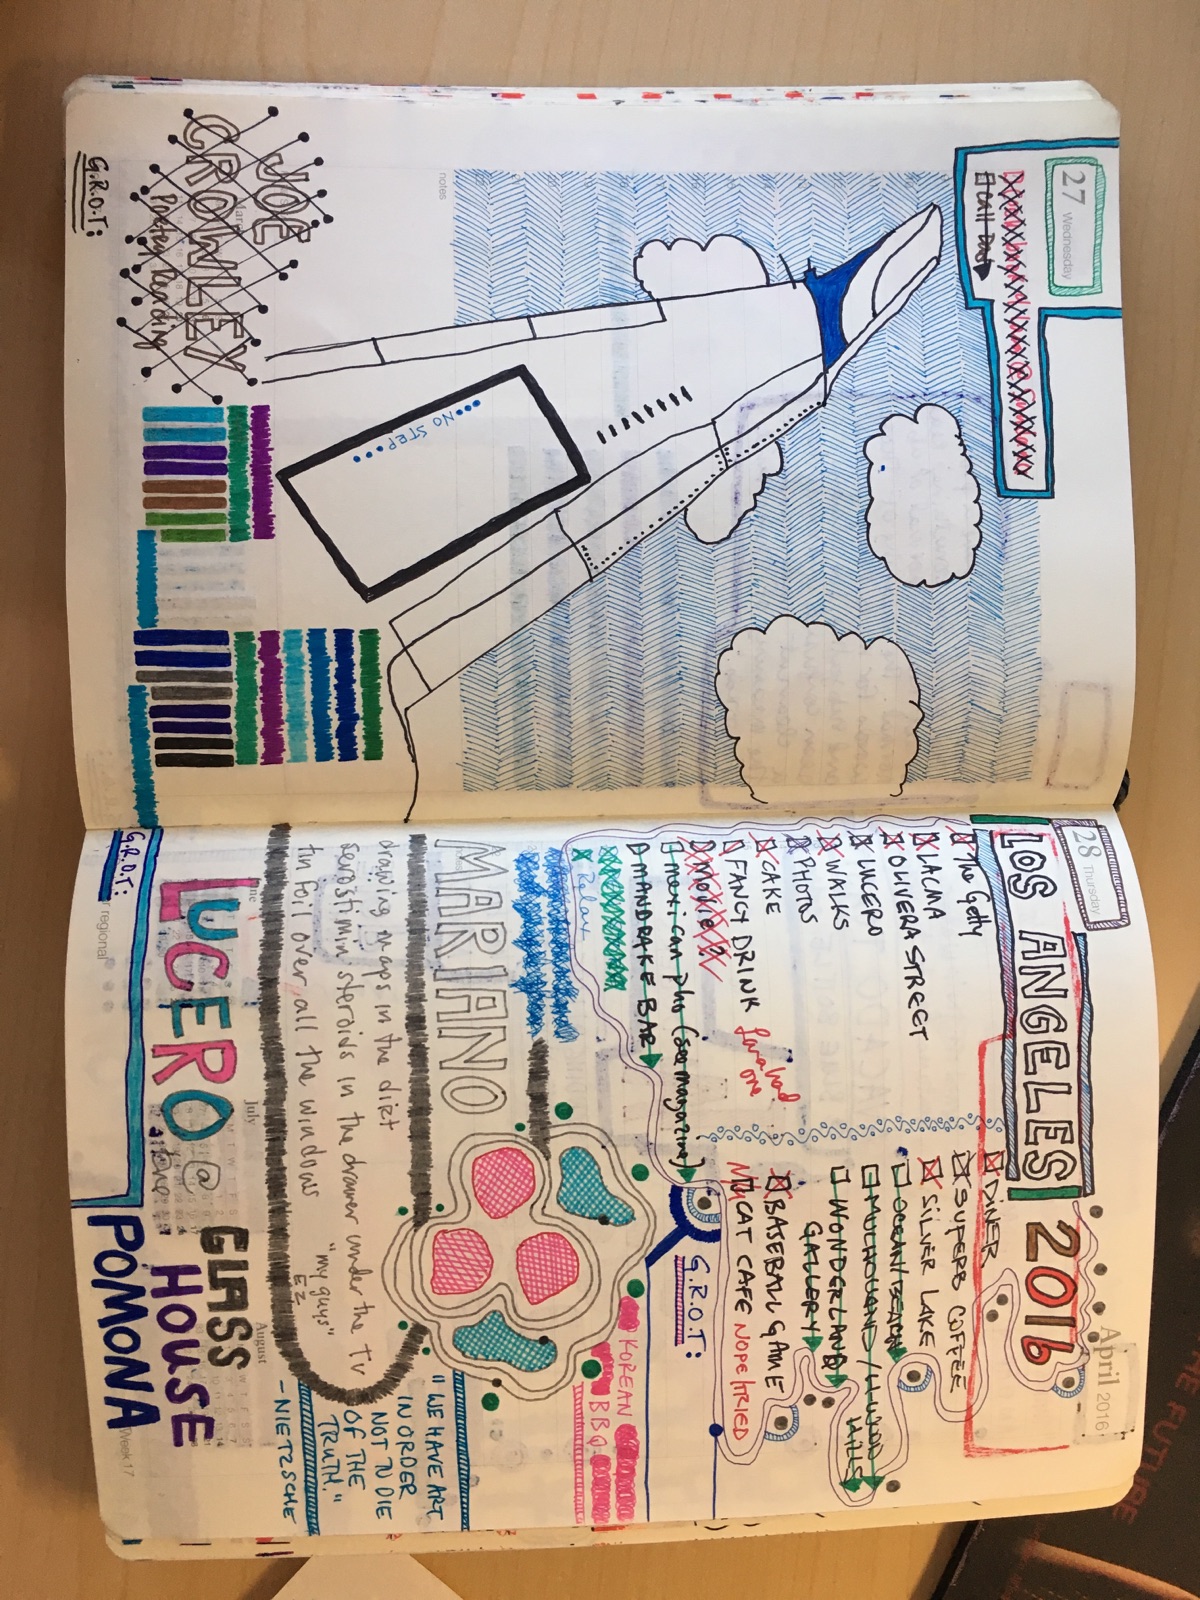 27 Wednesday
notes
NO STEP
JOE
CROWLEY
Poetry Reading
G.R.O.T:
28 Thursday
April 2016
LOS ANGELES 2016
The Getty
LACMA
OLIVERA STREET
LUCERO
WALKS
PHOTOS
CAKE
FANCY DRINK
MOVIE?
mexican plus (see magazine)
MANDRAKE BAR
Relax
DINER
SUPERB COFFEE
SILVER LAKE
WONDERLAND
GALLERY
BASEBALL GAME
CAT CAFE NOPE TRIED
G.R.O.T:
KOREAN
BBQ
MARIANO
drawing maps in the dirt
serostimin steroids in the drawer under the TV
tin foil over all the windows
"my guys"
EZ
"WE HAVE ART
IN ORDER
NOT TO DIE
OF THE
TRUTH."
- NIETZSCHE
G.R.O.T:
regional
June
July
August
Week 17
LUCERO @ GLASS
HOUSE
POMONA
FUTURE